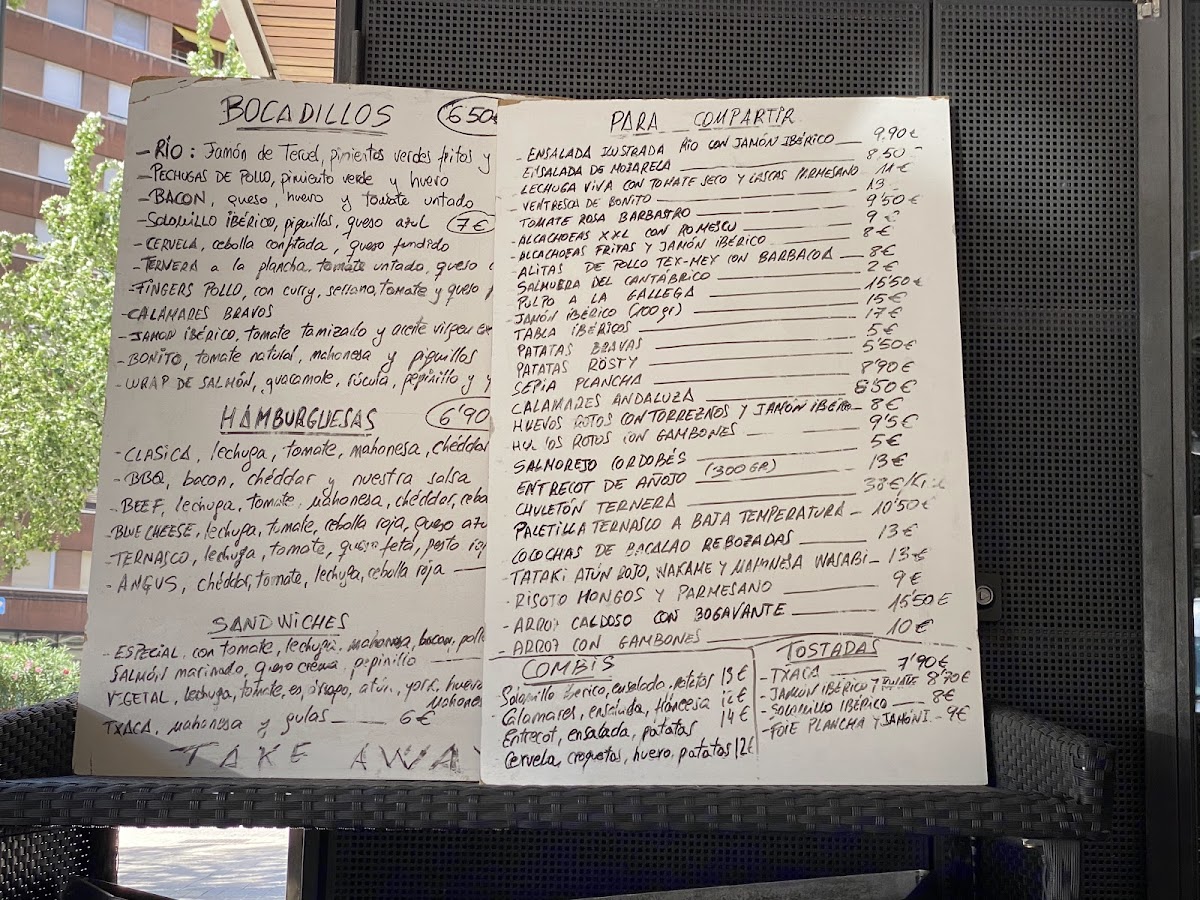 BOCADILLOS 6'50€
- RÍO: Jamón de Teruel, pimientos verdes fritos y
- PECHUGAS DE POLLO, pimiento verde y huevo
- BACON, queso, huevo y tomate untado
- SOLOMILLO IBÉRICO, piquillos, queso azul 7€
- CERVELA, cebolla confitada, queso fundido
- TERNERA a la plancha, tomate untado, queso
- FINGERS POLLO, con curry, serrano, tomate y queso
- CALAMARES BRAVOS
- JAMÓN IBÉRICO, tomate tamizado y aceite virgen
- BONITO, tomate natural, mahonesa y piquillos
- WRAP DE SALMÓN, guacamole, rúcula, pepinillo y
HAMBURGUESAS 6'90
- CLASICA, lechuga, tomate, mahonesa, chéddar
- BBQ, bacon, chéddar y nuestra salsa
- BEEF, lechuga, tomate, mahonesa, chéddar, cebo
- BLUE CHEESE, lechuga, tomate, cebolla roja, queso azu
- TERNASCO, lechuga, tomate, queso feta, pesto
- ANGUS, chéddar, tomate, lechuga, cebolla roja
SANDWICHES
- ESPECIAL, con tomate, lechuga, mahonesa, bacon, pollo
SALMÓN marinado, queso crema, pepinillo
VEGETAL, lechuga, tomate, espárrago, atún, york, huevo
mahonesa
TXACA, mahonesa y gulas 6€
TAKE AWAY
PARA COMPARTIR
- ENSALADA ILUSTRADA RÍO CON JAMÓN IBÉRICO 9,90€
ENSALADA DE MOZARELA 8,50
LECHUGA VIVA CON TOMATE SECO Y LASCAS PARMESANO 11€
- VENTRESCA DE BONITO 13
TOMATE ROSA BARBASTRO 9'50€
- ALCACHOFAS XXL CON ROMESCU 9€
- ALCACHOFAS FRITAS Y JAMÓN IBÉRICO 8€
- ALITAS DE POLLO TEX-MEY CON BARBACOA 8€
SALMUERA DEL CANTÁBRICO 2€
PULPO A LA GALLEGA 15'50€
- JAMÓN IBÉRICO (100gr) 15€
TABLA IBÉRICOS 17€
PATATAS BRAVAS 5€
PATATAS RÖSTY 5'50€
SEPIA PLANCHA 8'90€
CALAMARES ANDALUZA 8'50€
HUEVOS ROTOS CON TORREZNOS Y JAMÓN IBÉRICO 8€
HUEVOS ROTOS CON GAMBONES 9'5€
SALMOREJO CORDOBÉS 5€
ENTRECOT DE AÑOJO (300GR) 13€
CHULETÓN TERNERA 38€/Kilo
PALETILLA TERNASCO A BAJA TEMPERATURA 10'50€
COCOCHAS DE BACALAO REBOZADAS 13€
- TATAKI ATÚN ROJO, WAKAME Y MAHONESA WASABI 13€
- RISOTO HONGOS Y PARMESANO 9€
- ARROZ CALDOSO CON BOGAVANTE 15'50€
- ARROZ CON GAMBONES 10€
COMBIS
Solomillo ibérico, ensalada, patatas 13€
Calamares, ensalada, francesa 12€
Entrecot, ensalada, patatas 14€
Cervela, croquetas, huevo, patatas 12€
TOSTADAS
- TXACA 7'90€
- JAMÓN IBÉRICO Y TOMATE 8'70€
- SOLOMILLO IBÉRICO 8€
- FOIE PLANCHA Y JAMÓN I. 9€